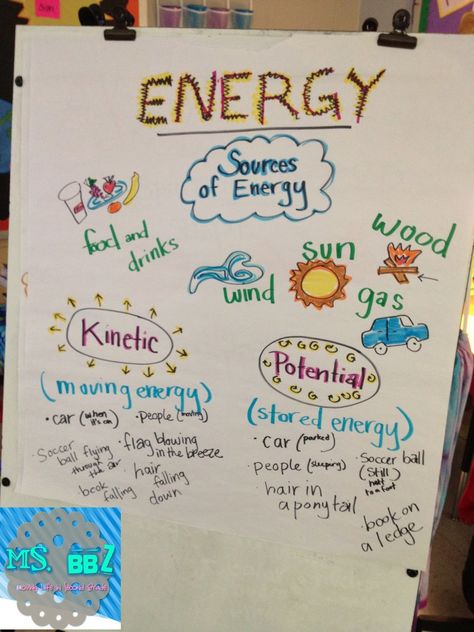 ENERGY
Sources
of Energy
food and
drinks
wind
sun
wood
gas
Kinetic
(moving energy)
• car (when it's on)
• people (moving)
• Soccer
ball flying
through
the air
• flag blowing
in the breeze
• book
falling
• hair
falling
down
Potential
(stored energy)
• car (parked)
• people (sleeping)
• hair in
a ponytail
• Soccer ball
(still)
next
to a foot
• book on
a ledge
MS. BBZ